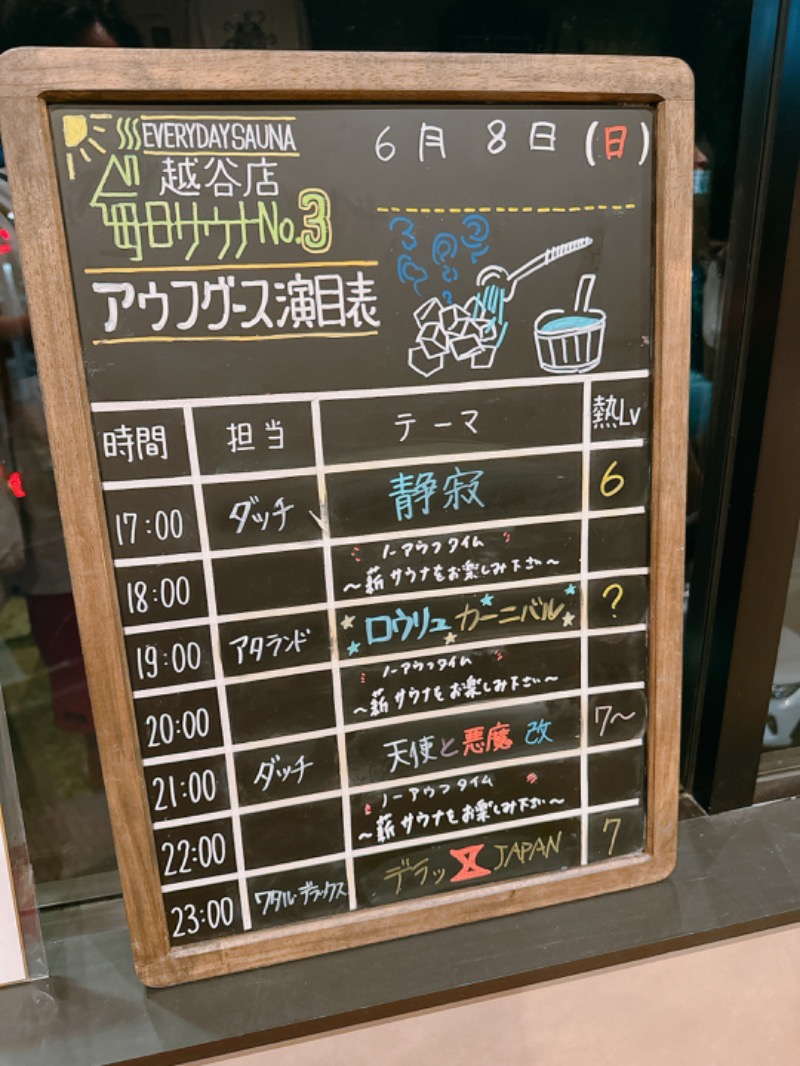 EVERYDAY SAUNA
越谷店
毎日サウナNo.3
6月 8日 (日)
アウフグース演目表
時間 担当 テーマ 熱Lv
17:00 ダッチ 静寂 6
18:00 ノーアウフタイム
～薪サウナをお楽しみ下さい～
19:00 アタランド ロウリュカーニバル ?
20:00 ノーアウフタイム
～薪サウナをお楽しみ下さい～
21:00 ダッチ 天使と悪魔 改 7～
22:00 ノーアウフタイム
～薪サウナをお楽しみ下さい～
23:00 ワタル・デラックス デラッX JAPAN 7